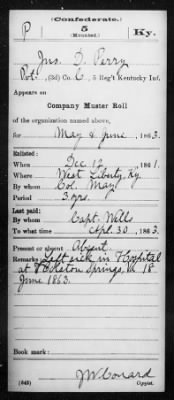 (Confederate.)
P 5 Ky.
(Mounted.)
Jno. D. Perry
Pvt., (3d) Co. C, 5 Reg't Kentucky Inf.
Appears on
Company Muster Roll
of the organization named above,
for May & June, 1863.
Enlisted:
When Dec 12, 1861.
Where West Liberty, Ky.
By whom Col. May
Period 3 yrs.
Last paid:
By whom Capt. Wells
To what time Apl. 30, 1863.
Present or absent Absent.
Remarks Left sick in Hospital
at Springs, 18
June 1863.
Book mark:
J W Conard
(642) Copyist.